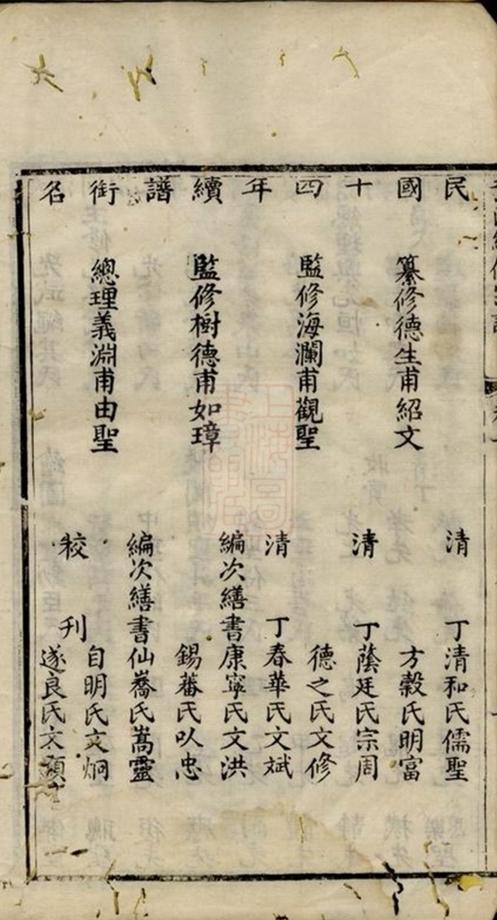 民國十四年續譜銜名
纂修德生甫紹文
監修海瀾甫觀聖
監修樹德甫如璋
總理義淵甫由聖
清丁清和氏儒聖
方穀氏明富
清丁蔭廷氏宗周
德之氏文修
清丁春華氏文斌
編次繕書康寧氏文洪
錫蕃氏以忠
編次繕書仙喬氏蒿靈
校刊自明氏文炯
遂良氏文